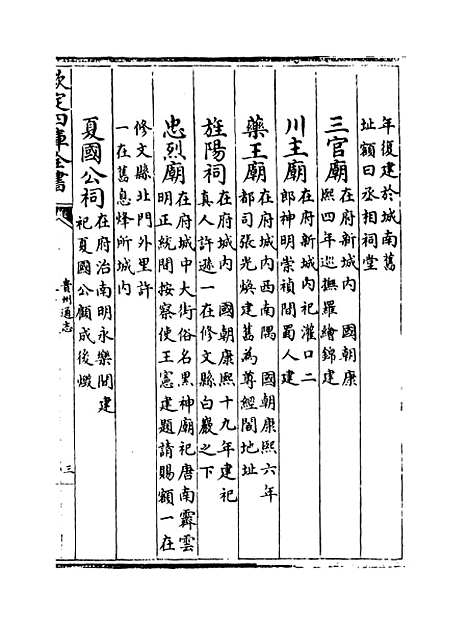 年復建於城南舊
址額曰丞相祠堂
三官廟在府新城內　國朝康
熙四年巡撫羅繪錦建
川主廟在府新城內祀灌口二
郎神明崇禎間蜀人建
藥王廟在府城內西南隅　國朝康熙六年
都司張光煥建舊為尊經閣地址
旌陽祠在府城內　國朝康熙十九年建祀
真人許遜一在修文縣白巖之下
忠烈廟在府城中大街俗名黑神廟祀唐南霽雲
明正統間按察使王憲建題請賜額一在
修文縣北門外里許
一在舊息烽所城內
夏國公祠在府治南明永樂間建
祀夏國公顧成後燬
欽定四庫全書
貴州通志
三